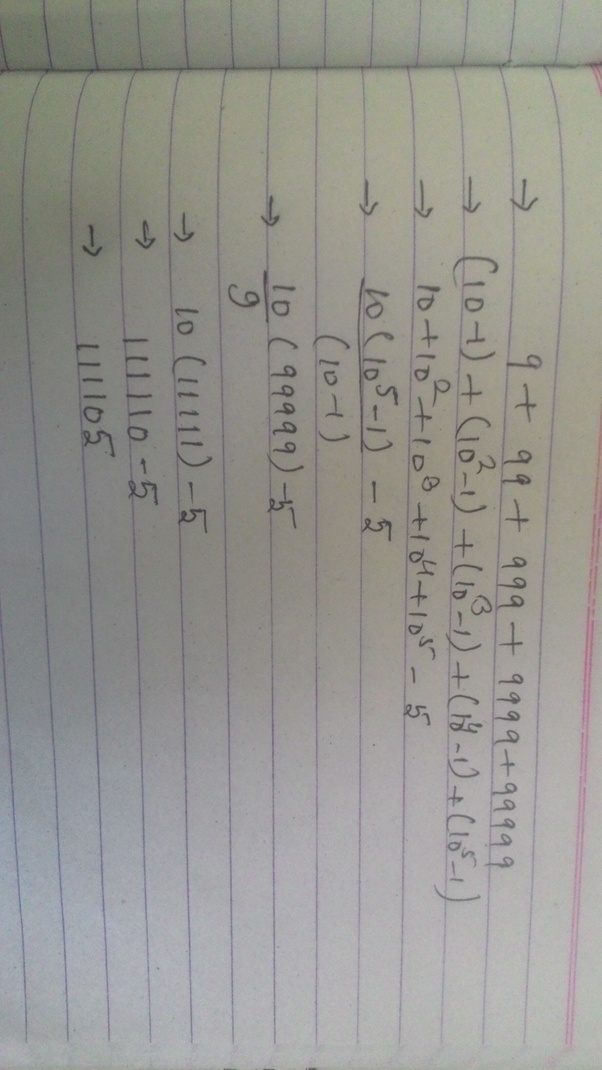 → 9 + 99 + 999 + 9999 + 99999
→ (10-1) + (10²-1) + (10³-1) + (10⁴-1) + (10⁵-1)
→ 10 + 10² + 10³ + 10⁴ + 10⁵ - 5
→ 10(10⁵-1) - 5
(10-1)
→ 10 (99999) - 5
9
→ 10 (11111) - 5
→ 111110 - 5
→ 111105